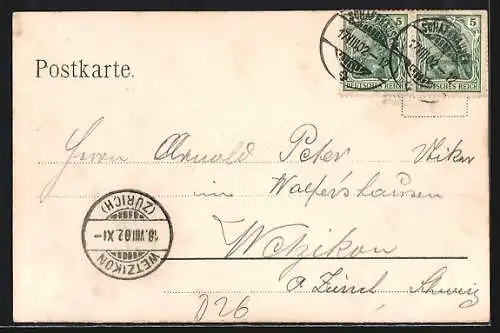 5 5
SCHAFFHAUSEN
17.VIII.02
DEUTSCHES REICH DEUTSCHES REICH
Postkarte.
Herrn Arnold Peter
im
Wetzikon
Zürich Schweiz
WETZIKON
18.VIII.02.XI-
(ZÜRICH)
D26